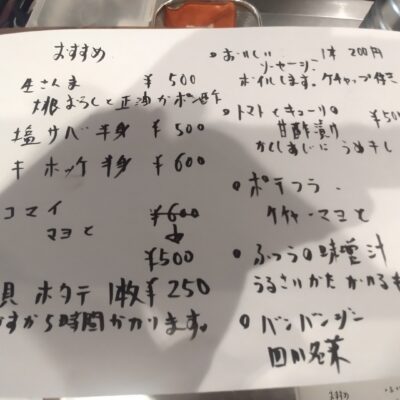 おすすめ
生さんま ¥500
大根おろしと正油かポン酢
塩サバ半身 ¥500
キホッケ半身 ¥600
コマイ ¥600
マヨと
¥500
貝ホタテ1枚¥250
すから時間かかります。
・おいしい 1本200円
ソーセージ
ボイルします。ケチャップ付き
・トマトとキューリの ¥50
甘酢漬け
かくしあじにうめ干し
・ポテフラ
ケチャーマヨと
・ふつうの味噌汁
うるさいかた
・バンバンジー
四川名菜
おすすめ